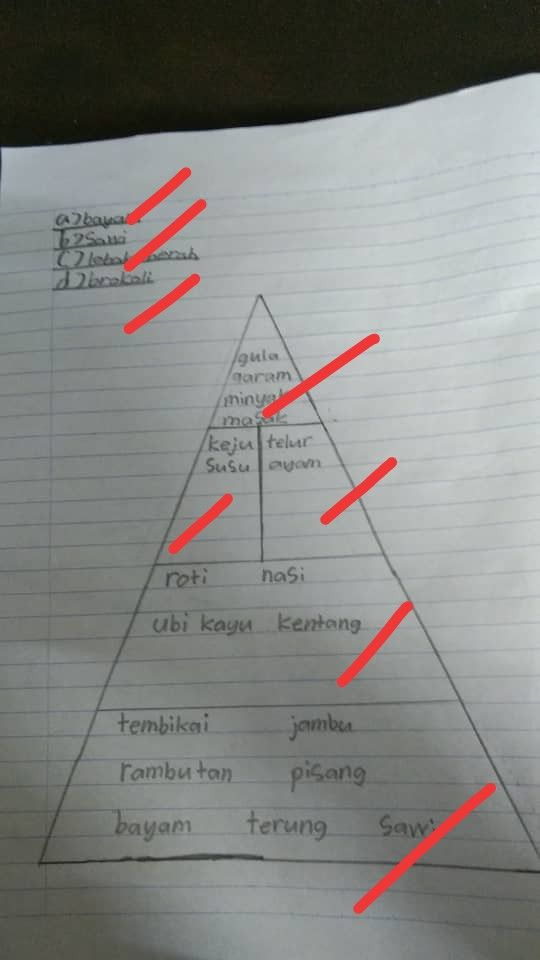 a) bayam
b) Sawi
c) lobak merah
d) brokoli
gula
garam
minyak
masak
keju telur
susu ayam
roti nasi
ubi kayu kentang
tembikai jambu
rambutan pisang
bayam terung sawi